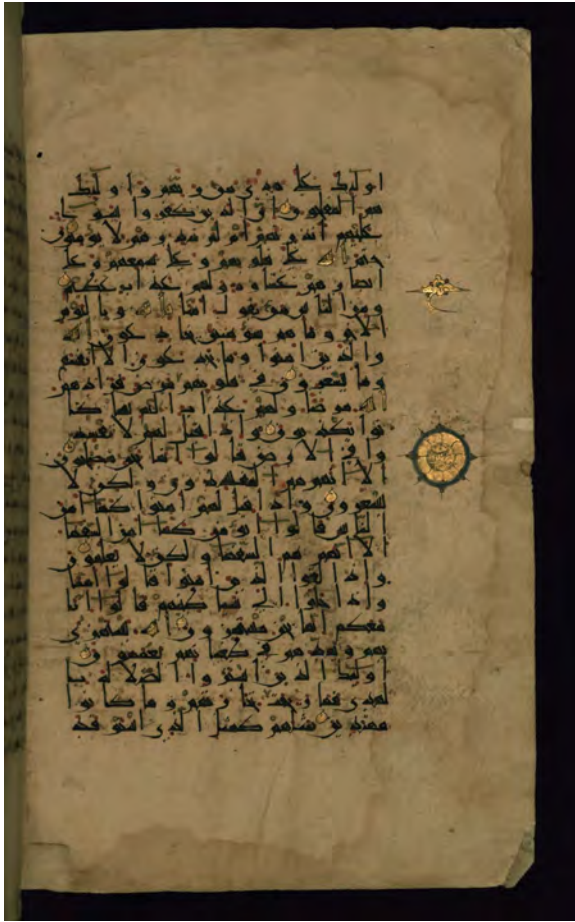 اولئك على هدى من ربهم واولئك
هم المفلحون ان الذين كفروا سوا
عليهم أنذرتهم ام لم تنذرهم لا يؤمنون
ختم الله على قلوبهم وعلى سمعهم وعلى
ابصرهم غشاوة ولهم عذاب عظيم
ومن الناس من يقول امنا بالله وباليوم
الاخر وما هم بمؤمنين يخادعون الله
والذين امنوا وما يخدعون الا انفسهم
وما يشعرون في قلوبهم مرض فزادهم
الله مرضا ولهم عذاب اليم بما كا
نوا يكذبون واذا قيل لهم لا تفسد
وا في الارض قالوا انما نحن مصلحون
الا انهم هم المفسدون ولكن لا
يشعرون واذا قيل لهم امنوا كما امن
الناس قالوا انؤمن كما امن السفها
الا انهم هم السفها ولكن لا يعلمون
واذا لقوا الذين امنوا قالوا امنا
واذا خلوا الى شيطينهم قالوا انا
معكم انما نحن مستهزون الله يستهزي
بهم ويمدهم في طغيانهم يعمهون
اولئك الذين اشتروا الضلالة با
لهدى فما ربحت تجارتهم وما كانوا
مهتدين مثلهم كمثل الذي استوقد